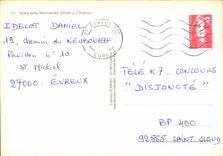 Notre belle Normandie (photo J.J. Dubosq)
IDELOT DANIEL
19, chemin du NEUBOURG
Pavillon n° 10
St Michel
27000. ÉVREUX
TÉLÉ K7. CONCOURS
"DISJONCTÉ"
BP 400
92855 SAINT CLOUD